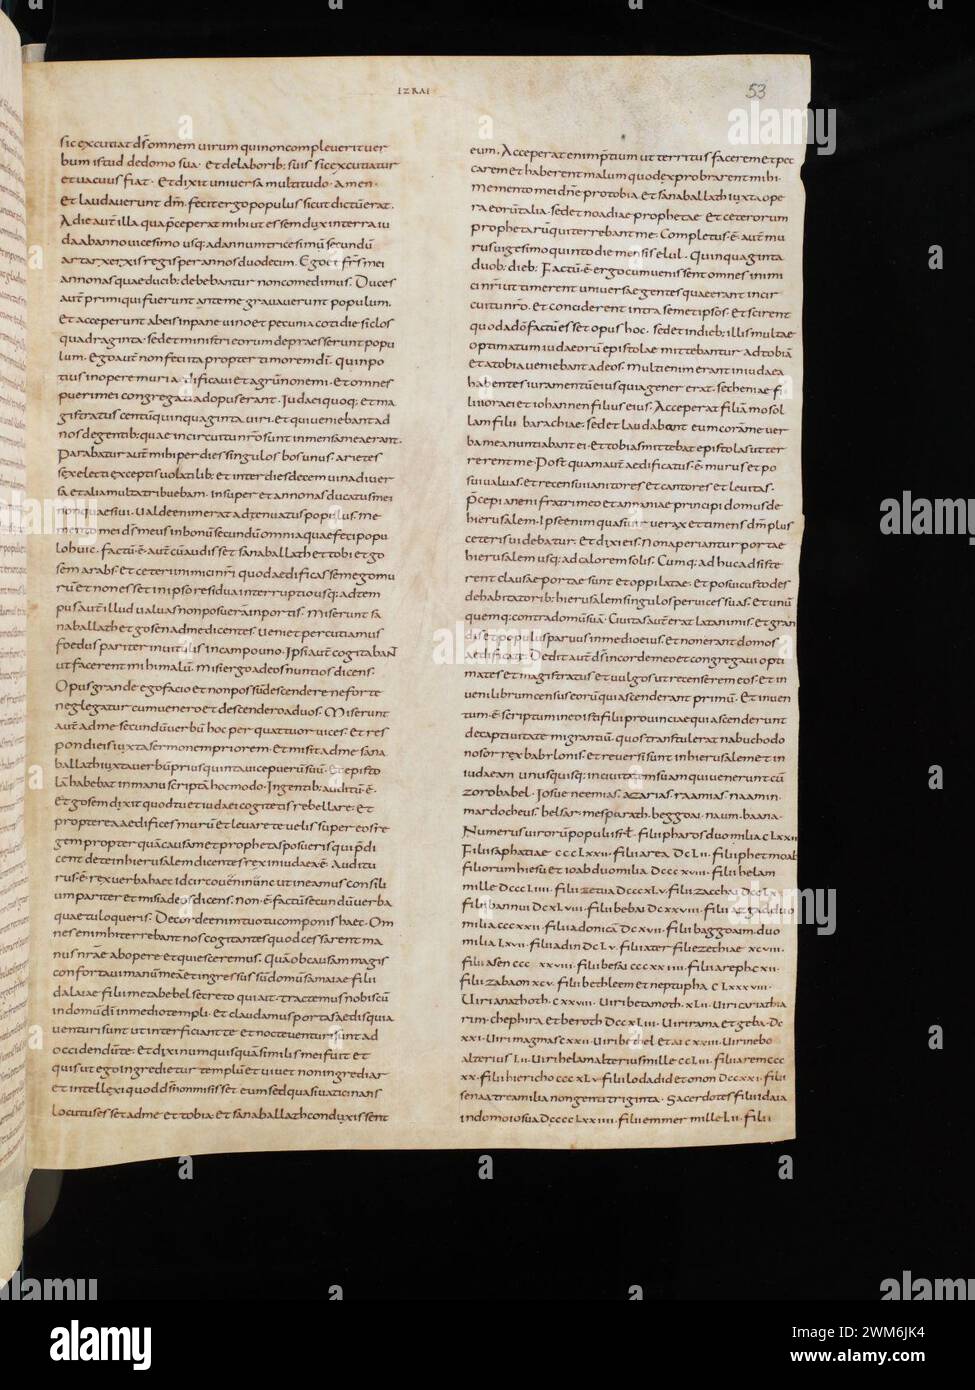 IZRAI
53
sic excutiat ds̄ omnem uirum qui non compleuerit uer
bum istud de domo sua · Et de laborib; suis sic excutiatur
et uacuus fiat · Et dixit uniuersa multitudo · Amen ·
Et laudauerunt dm̄ · fecit ergo populus sicut dictū erat.
A die aut̄ illa qua p̄ceperat mihi ut essem dux in terra iu
da ab anno uicesimo usq; ad annum tricesimū secundū
artarxerxis regis per annos duodecim. Ego et fr̄s mei
annonas quae ducib; debebantur non comedimus. Duces
aut̄ primi qui fuerunt ante me grauauerunt populum.
Et acceperunt ab eis in pane uino et pecunia cotidie siclos
quadraginta · sed et ministri eorum depraesserunt popu
lum. Ego aut̄ non feci ita propter timorem dī. quin po
tius in opere muri aedificaui et agrū non emi · Et omnes
pueri mei congregati ad opus erant. Iudaei quoq; et ma
gistratus centū quinquaginta uiri · et qui ueniebant ad
nos de gentib; quae in circuitu nr̄o sunt in mensa mea erant.
Parabatur aut̄ mihi per dies singulos bos unus. arietes
sex electi exceptis uolatilib; et inter dies decem uina diuer
sa et alia multa tribuebam. Insuper et annonas ducatus mei
non quaesiui. Ualde enim erat adtenuatus populus. Me
mento mei ds̄ meus in bonū secundū omnia quae feci popu
lo huic. factū · ē · aut̄ cū audisset sanaballath et tobi et go
sem arabs · et ceteri inimici nr̄i quod aedificassem ego mu
rū et non esset in ipso residua interruptio usq; ad tem
pus aut̄ illud ualuas non posuerā in portis. Miserunt sa
naballath et gosen ad me dicentes. Ueni et percutiamus
foedus pariter in uitulis in campo uno. Ipsi aut̄ cogitabaN̄
ut facerent mihi malū. Misi ergo ad eos nuntios dicens.
Opus grande ego facio et non possū descendere ne forte
neglegatur cum uenero et descendero ad uos. Miserunt
aut̄ ad me secundū uerbū hoc per quattuor uices. Et res
pondi eis iuxta sermonem priorem. Et misit ad me sana
ballath iuxta uerbū prius quinta uice puerū suū. Et episto
lā habebat in manu scriptā hoc modo. In gentib; auditū · ē ·
Et gosem dixit quod tu et iudaei cogitetis rebellare · Et
propterea aedifices murū et leuare te uelis super eos re
gem propter quā causam et prophetas posueris qui p̄di
cent de te in hierusalem dicentes · rex in iudaea · ē · Auditu
rus · ē · rex uerba haec · Idcirco ueni nunc ut ineamus consili
um pariter · et misi ad eos dicens. Non · ē · factū secundū uerba
quae tu loqueris. De corde enim tuo tu componis haec. Om
nes enim hi terrebant nos cogitantes quod cessarent ma
nus nr̄ae ab opere et quiesceremus. Quā ob causam magis
confortaui manū meā et ingressus sū domū samaiae filii
dalaiae filii metabehel secreto qui ait · tractemus nobiscū
in domū dī in medio templi · et claudamus portas aedis quia
uenturi sunt ut interficiant te · et nocte uenturi sunt ad
occidendū te · Et dixi num quisquā similis mei fuit et
quis ut ego ingredietur templū et uiuet non ingrediar
et intellexi quod ds̄ non misisset eum sed quasi uaticinans
locutus esset ad me · et tobia · et sanaballath conduxissent
eum. Acceperat enim p̄tium ut territus facerem et pec
carem et haberent malum quod exprobrarent mihi.
Memento mei dn̄e pro tobia et sanaballath iuxta ope
ra eorū talia · sed et noadiae prophetae · Et ceterorum
prophetarū qui terrebant me · Completus · ē · aut̄ mu
rus uigesimo quinto die mensis elul. Quinquaginta
duob; dieb; Factū · ē · ergo cum uenissent omnes inimi
ci nr̄i ut timerent uniuersae gentes quae erant in cir
cuitu nr̄o. et conciderent intra semet ipsos. et scirent
quod a dō factū esset opus hoc. sed et in dieb; illis multae
optimatum iudaeorū epistolae mittebantur ad tobiā
et a tobia ueniebant ad eos. Multi enim erant in iudaea
habentes iuramentū eius quia gener erat. secheniae fi
lii iorae et iohannen filius eius. Acceperat filiā mosol
lam filii barachiae. sed et laudabant eum corā me uer
ba mea nuntiabant ei · Et tobias mittebat epistolas ut ter
rerent me. Postquam aut̄ aedificatus · ē · murus et po
sui ualuas. et recensui ianitores et cantores et leuitas.
p̄cepi aneni fratri meo et ananiae principi domus de
hierusalem. Ipse enim quasi uir uerax et timens dm̄ plus
ceteris uidebatur. Et dixi eis. Non aperiantur portae
hierusalem usq; ad calorem solis. Cumq; adhuc adsiste
rent clausae portae sunt et oppilatae. Et posui custodes
de habitatorib; hierusalem singulos per uices suas. et unū
quemq; contra domū suā. Ciuitas aut̄ erat lata nimis. et gran
dis et populus paruus in medio eius. et non erant domos
aedificate. Dedit aut̄ ds̄ in corde meo et congregaui opti
mates et magistratus et uulgos ut recenserem eos. et in
ueni librum census eorū qui ascenderant primū. Et inuen
tum · ē · scriptum in eo isti filii prouinciae qui ascenderunt
de captiuitate migrantiū. quos transtulerat nabuchodo
nosor rex babylonis. et reuersi sunt in hierusalem et in
iudaeam unusquisq; in ciuitatem suam qui uenerunt cū
zorobabel. Iosue neemias. azarias. raamias. naamin.
mardocheus. belsar. mespharath. beggoai. naum. baana.
Numerus uirorū populi isr̄l. filii pharos duo milia CLXXII
Filii saphatiae CCCLXXII. filii area DCLII. filii phetmoab
filiorum hiesu et ioab duo milia DCCCXVIII. filii helam
mille DCCCLIIII. filii zetia DCCCXLV. filii zacchai DCCLX.
filii bannui DCXLVIII. filii bebai DCXXVIII. filii azgad duo
milia CCCXXII. filii adonicā DCXVII. filii baggoaim duo
milia LXVII. filii adin DCLV. filii ater filii ezechiae XCVIII.
filii asen CCC XXVIII. filii besai CCCXXIIII. filii areph CXII.
filii zabaon XCV. filii bethleem et neptupha CLXXXVIII.
Uiri anathoth. CXXVIII. Uiri betamoth. XLII. Uiri cariathia
rim. chephira et beroth DCCXLIII. Uiri rama et geba. DC
XXI. Uiri magmas CXXII. Uiri bethel et ai CXXIII. Uiri nebo
alterius LII. Uiri helam alterius mille CCLIIII. filii arem CCC
XX. filii hiericho CCCXLV. filii lod adid et onon DCCXXI. filii
senaa tre a milia nongenti triginta. Sacerdotes filii idaia
in domo iosua DCCCCLXXIIII. filii emmer mille LII. filii
alamy
Image ID: 2WM6JK4
www.alamy.com